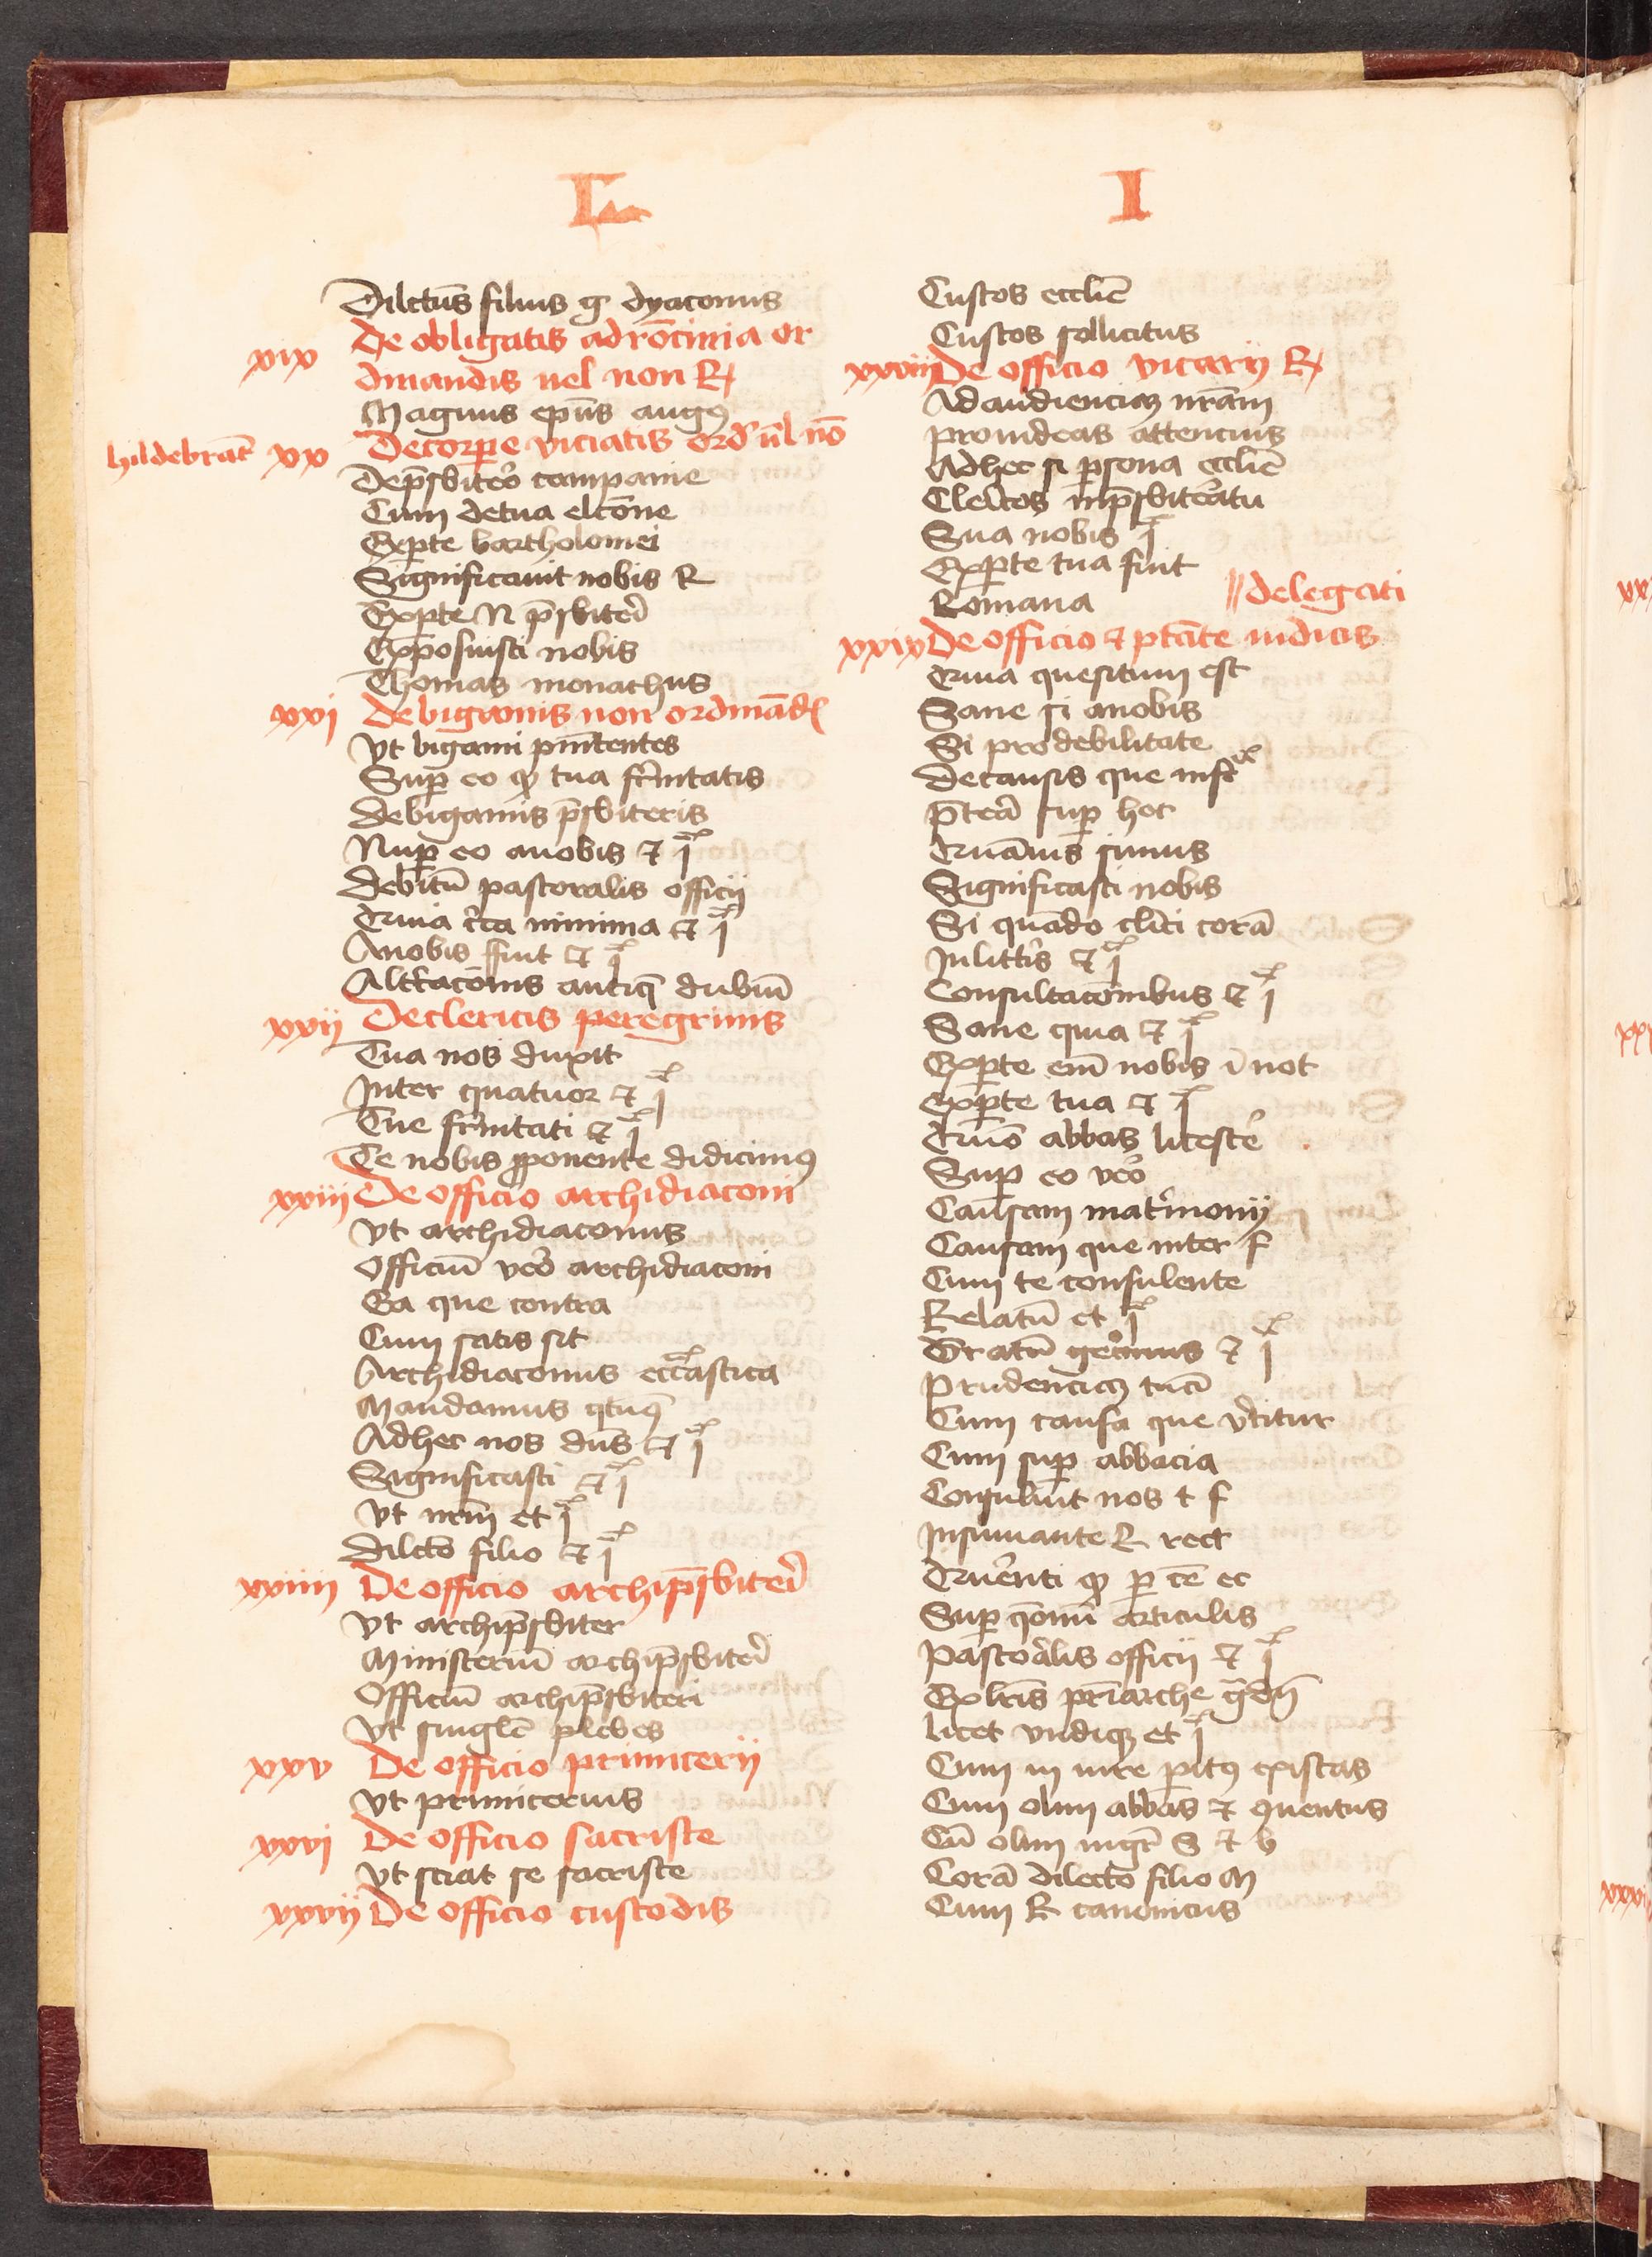 L I
Dilctūs filius g dyaconus
xix De obligatis ad rōcinia or
dinandis uel non R
Magnus ep̄us augꝰ
hildebrāt xx De corpe viciatis ord' ūl nō
De p̄sbitero campanie
Cum de tua elc̄one
Ex pte bartholomei
Significauit nobis R
Ex pte N p̄sbiteri
Exposuisti nobis
Thomas monachus
xxi De bigamis non ordinād
Vt bigami pnītentes
Suꝑ eo ꝙ tua frn̄itatis
De bigamis p̄sbiteris
Nuꝑ eo a nobis ⁊ i
Debitū pastoralis officij
Quia cc̄a minima ⁊ i
A nobis ffuit ⁊ i
Altercac̄onis antiq̄ dubiū
xxij De clericis peregrinis
Tua nos duxit
Inter quatuor ⁊ i
Tue frn̄itati ⁊ i
Te nobis ꝓponente didicimꝰ
xxiij De officio archidiaconi
Vt archidiaconus
Officiū vero archidiaconi
Ea que contra
Cum satis sit
Archidiaconus ecc̄astica
Mandamus qtuꝰ
Ad hec nos dn̄s ⁊ i
Significasti ⁊ i
Vt nr̄m et i
Dilc̄to filio ⁊ i
xxiiij De officio archip̄sbiteri
Vt archip̄sbiter
Ministeriū archip̄sbiteri
Officiū archip̄sbiteri
Vt singlē plebes
xxv De officio primicerij
Vt primicerius
xxvi De officio sacriste
Vt sciat se sacriste
xxvij De officio custodis
Custos eccliē
Custos sollicitus
xxviij De officio vicarij R
Ad audienciaꝫ nr̄am
Prouideas attencius
Ad hec si ꝑsona eccliē
Clericos in p̄sbiteratu
Sua nobis i
Ex ꝑte tua fuit
Romana // delegati
xxix De officio ⁊ ptāte iudicis
Quia quesitum est
Sane si a nobis
Si pro debilitate
De causis que inf
P̄terea suꝑ hoc
Quāuis simus
Significasti nobis
Si quādo clīci corā
In litt'is ⁊ i
Consultac̄onibus ⁊ i
Sane quia ⁊ i
Ex ꝑte em̄ nobis ī not
Ex ꝑte tua ⁊ i
Quō abbas licestē
Suꝑ eo vero
Causam mat'monij
Causam que inter f
Cum te consulente
Relatū et i
Gratū gerimus ⁊ i
Prudenciaꝫ tuā
Cum causa que v'titur
Cum suꝑ abbacia
Consuluit nos t f
Insinuante R rect
Quer'enti ꝙ ꝑ cē ec
Suꝑ q̄onū articulis
Pastoralis officij ⁊ i
Ex lr̄is pr̄iarche
licet vndiqꝫ et i
Cum in iure ꝑitꝰ existas
Cum olim abbas ⁊ ꝯuentus
Cū olim mgr̄ S ⁊ b
Corā dilecto filio M
Cum R canonicus